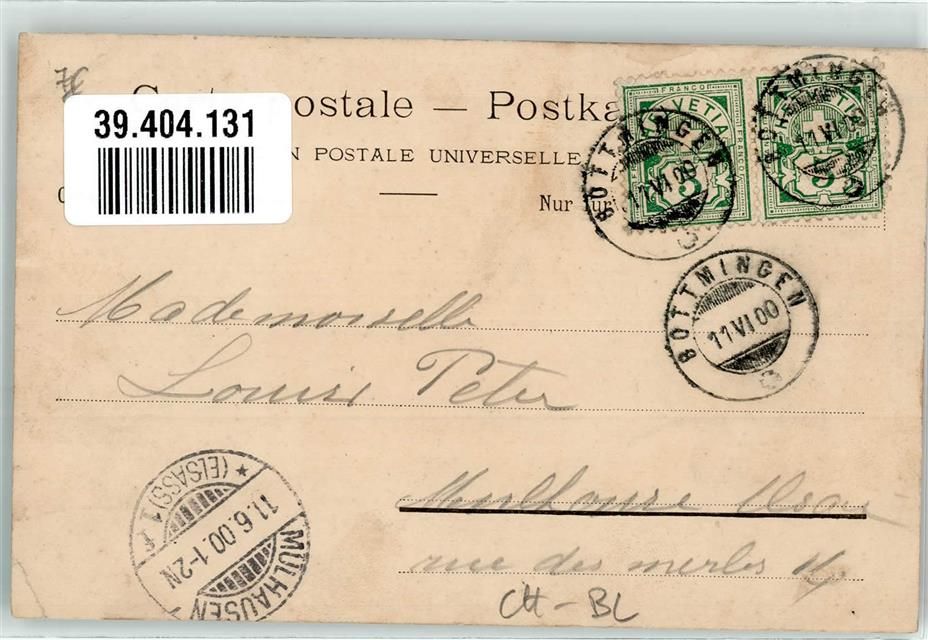 39.404.131
postale — Postka
N POSTALE UNIVERSELLE
Nur für
FRANCO
HELVETIA
5
BOTTMINGEN
11 VI 00
BOTTMINGEN
11 VI 00
BOTTMINGEN
11 VI 00
Mademoiselle
Louise Peter
Mulhouse Alsace
rue des merles 14
MÜLHAUSEN
(ELSASS) 1
11.6.00.1-2N
CH - BL